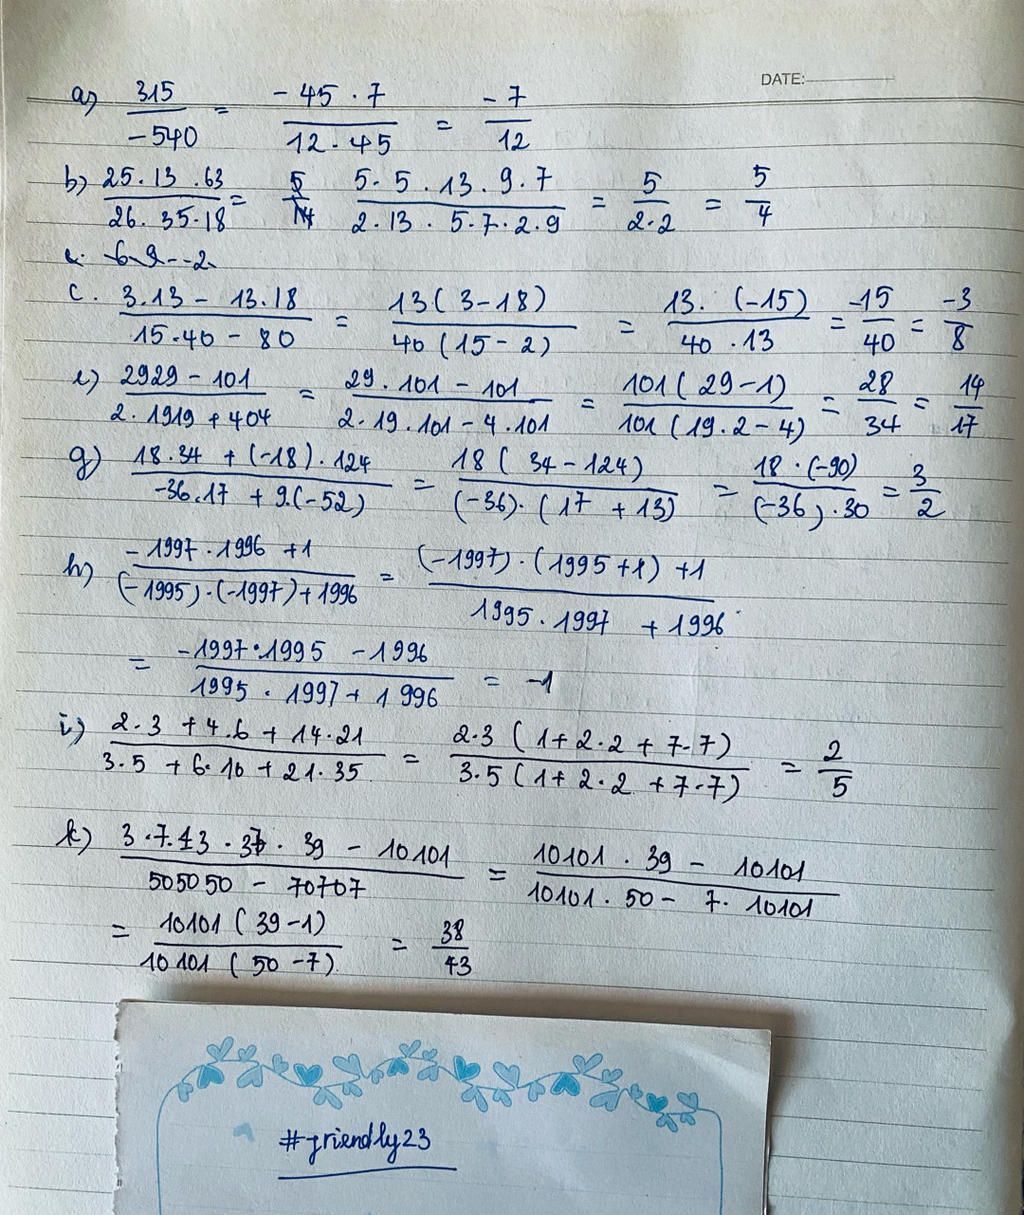 DATE:
a) 315/-540 = -45 . 7/12 . 45 = -7/12
b) 25.13.63/26.35.18 = 5/14 5.5.13.9.7/2.13.5.7.2.9 = 5/2.2 = 5/4
c. 3.13 - 13.18/15.40 - 80 = 13(3-18)/40(15-2) = 13.(-15)/40.13 = -15/40 = -3/8
e) 2929 - 101/2.1919 + 404 = 29.101 - 101/2.19.101 - 4.101 = 101(29-1)/101(19.2-4) = 28/34 = 14/17
g) 18.34 + (-18).124/-36.17 + 9.(-52) = 18(34-124)/(-36).(17+13) = 18.(-90)/(-36).30 = 3/2
h) -1997.1996 +1/(-1995).(-1997)+1996 = (-1997).(1995+1)+1/1995.1997 + 1996
= -1997.1995 - 1996/1995.1997 + 1996 = -1
i) 2.3 + 4.6 + 14.21/3.5 + 6.10 + 21.35 = 2.3(1+2.2+7.7)/3.5(1+2.2+7.7) = 2/5
k) 3.7.13.37.39 - 10101/505050 - 70707 = 10101.39 - 10101/10101.50 - 7.10101
= 10101(39-1)/10101(50-7) = 38/43
#friendly23